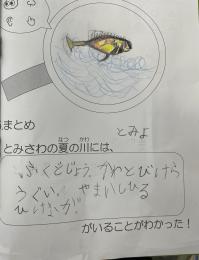 まとめ
とみよ
とみさわの夏の川には、
なつ かわ
ふくどじょう、かわとびけら
うぐい、やまいしひる
ひげながが
がいることがわかった！